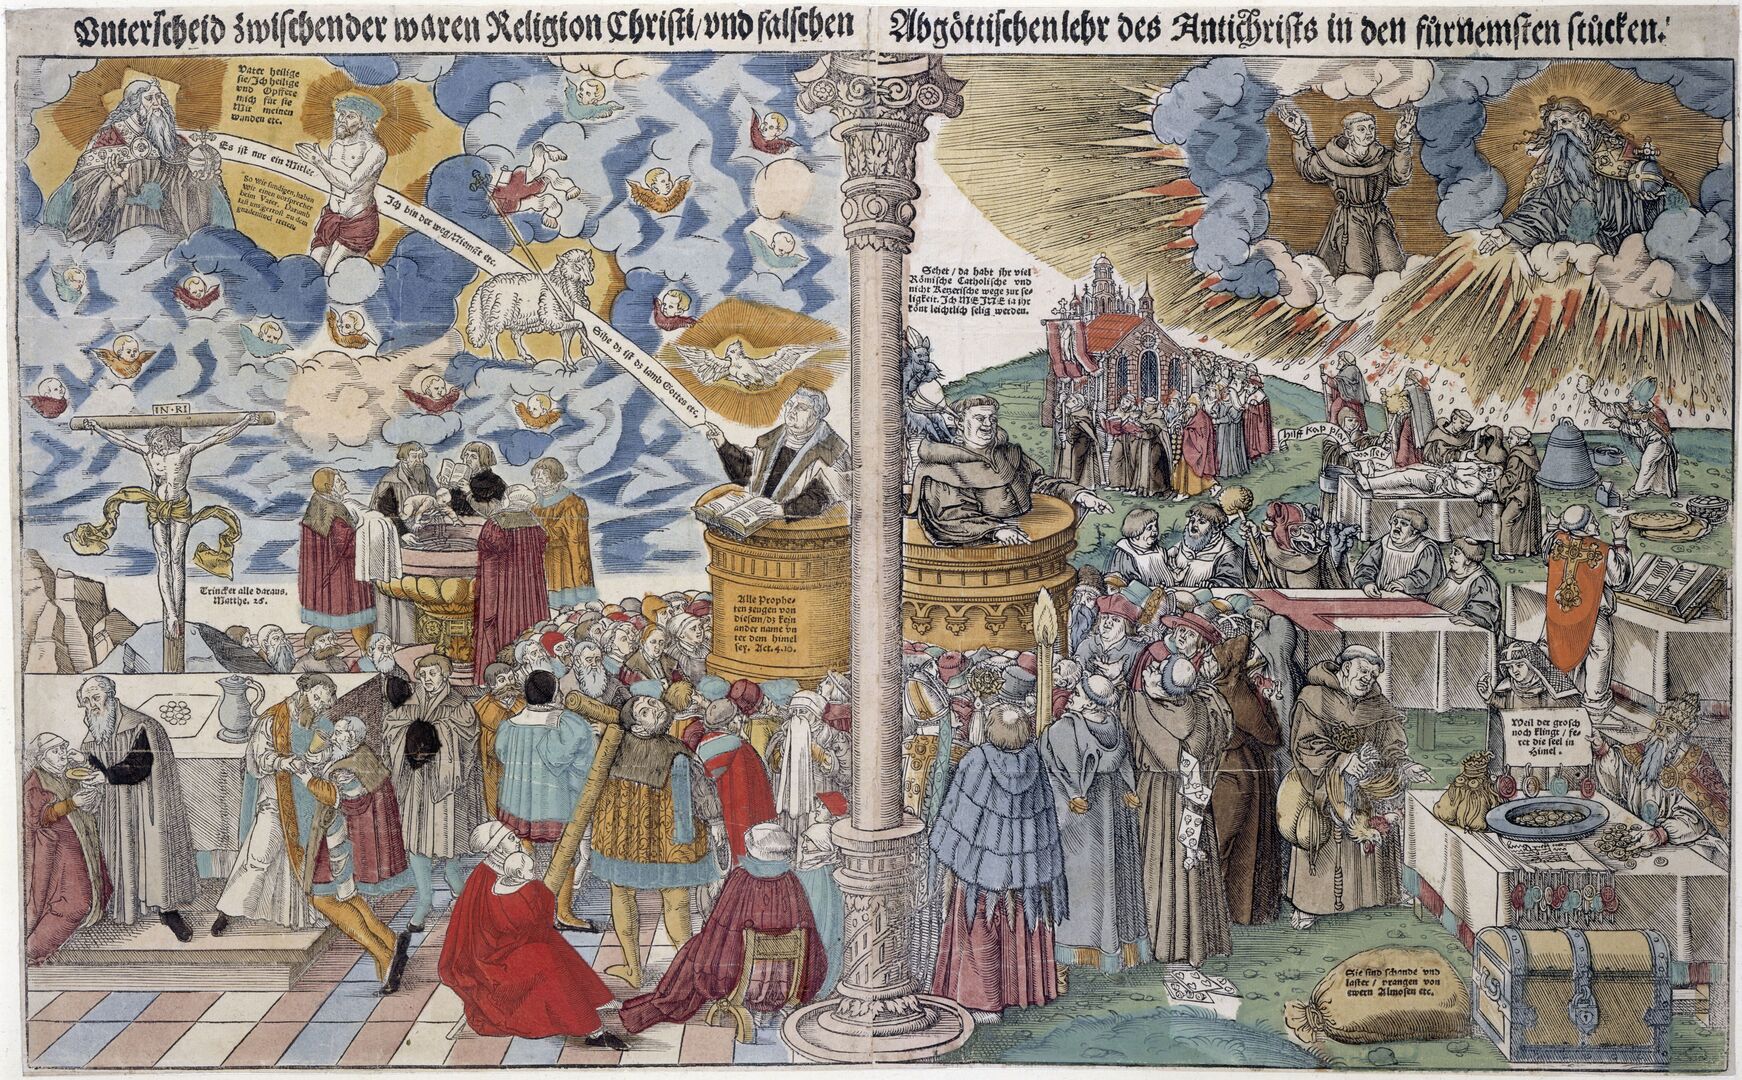 Unterscheid zwischen der waren Religion Christi / vnd falschen Abgöttischen lehr des Antichrists in den fürnemsten stücken.
Vater heilige
sie / Ich heilige
vnd Opffere
mich für sie
Mit meinen
wunden etc.
Es ist nur ein Mitler
So wir sundigen, haben
wir einen vorsprecher
beim Vater, Darumb
last uns getrost zu dem
gnadenstuel tretten
Ich bin der weg / Niemant etc.
Sihe dz ist dz lamb Gottes etc.
IN·RI
Trincket alle daraus.
Matthe. 26.
Alle Prophe-
ten zeugen von
diesem / dz kein
ander name vn
ter dem himel
sey. Act. 4. 10.
Sehet / da habt ihr viel
Römische Catholische vnd
nicht Ketzerische wege zur se-
ligkeit. Ich MEINE ia ihr
könt leichtlich selig werden.
hilff kap plat
wasser
Weil der grosch
noch klingt / fe-
ret die seel in
Himel.
Sie sind schande vnd
laster / prangen von
ewern Almosen etc.